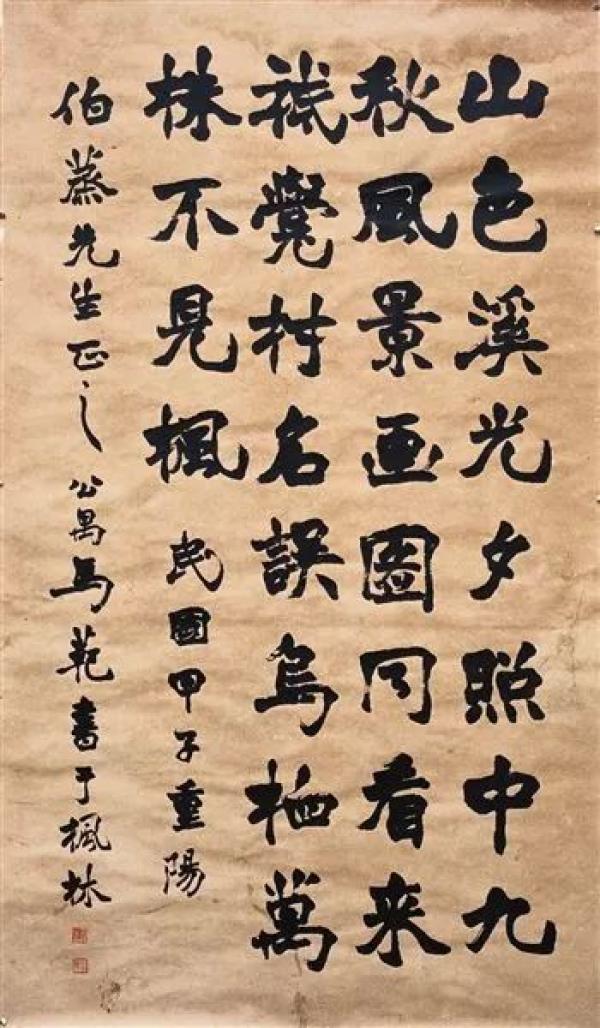 山色溪光夕照中九
秋風景画圖同看来
祇覺村名誤烏栖萬
株不見楓 民國甲子重陽
伯蒸先生正之 公禺馬範書于楓林